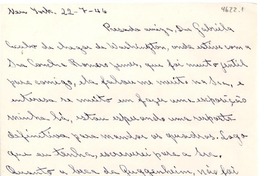 New York. 22-7-46
4622.1
Prezada amiga, Dra Gabriela
Acabo de chegar de Washington, onde estive com o
Snr Carlos Romero James, que foi muito gentil
para comigo, ele falou-me muito na Sra, e
interessa-se muito em fazer uma exposição
minha lá, estou esperando uma resposta
definitiva para mandar os quadros. Logo
que eu tenha, escreverei para a Sra.
Quanto a Casa de Guggenheim, não foi